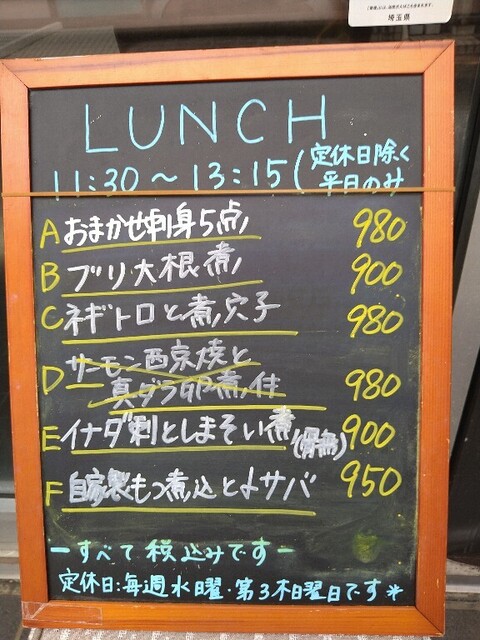 埼玉県
LUNCH
11:30～13:15(定休日除く
平日のみ
A おまかせ刺身5点 980
B ブリ大根煮 900
C ネギトロと煮穴子 980
D サーモン西京焼と
真ダラ卵煮付 980
E イナダ刺としまそい煮(骨無) 900
F 自家製もつ煮込と〆サバ 950
ーすべて税込みですー
定休日:毎週水曜・第3木曜日です*